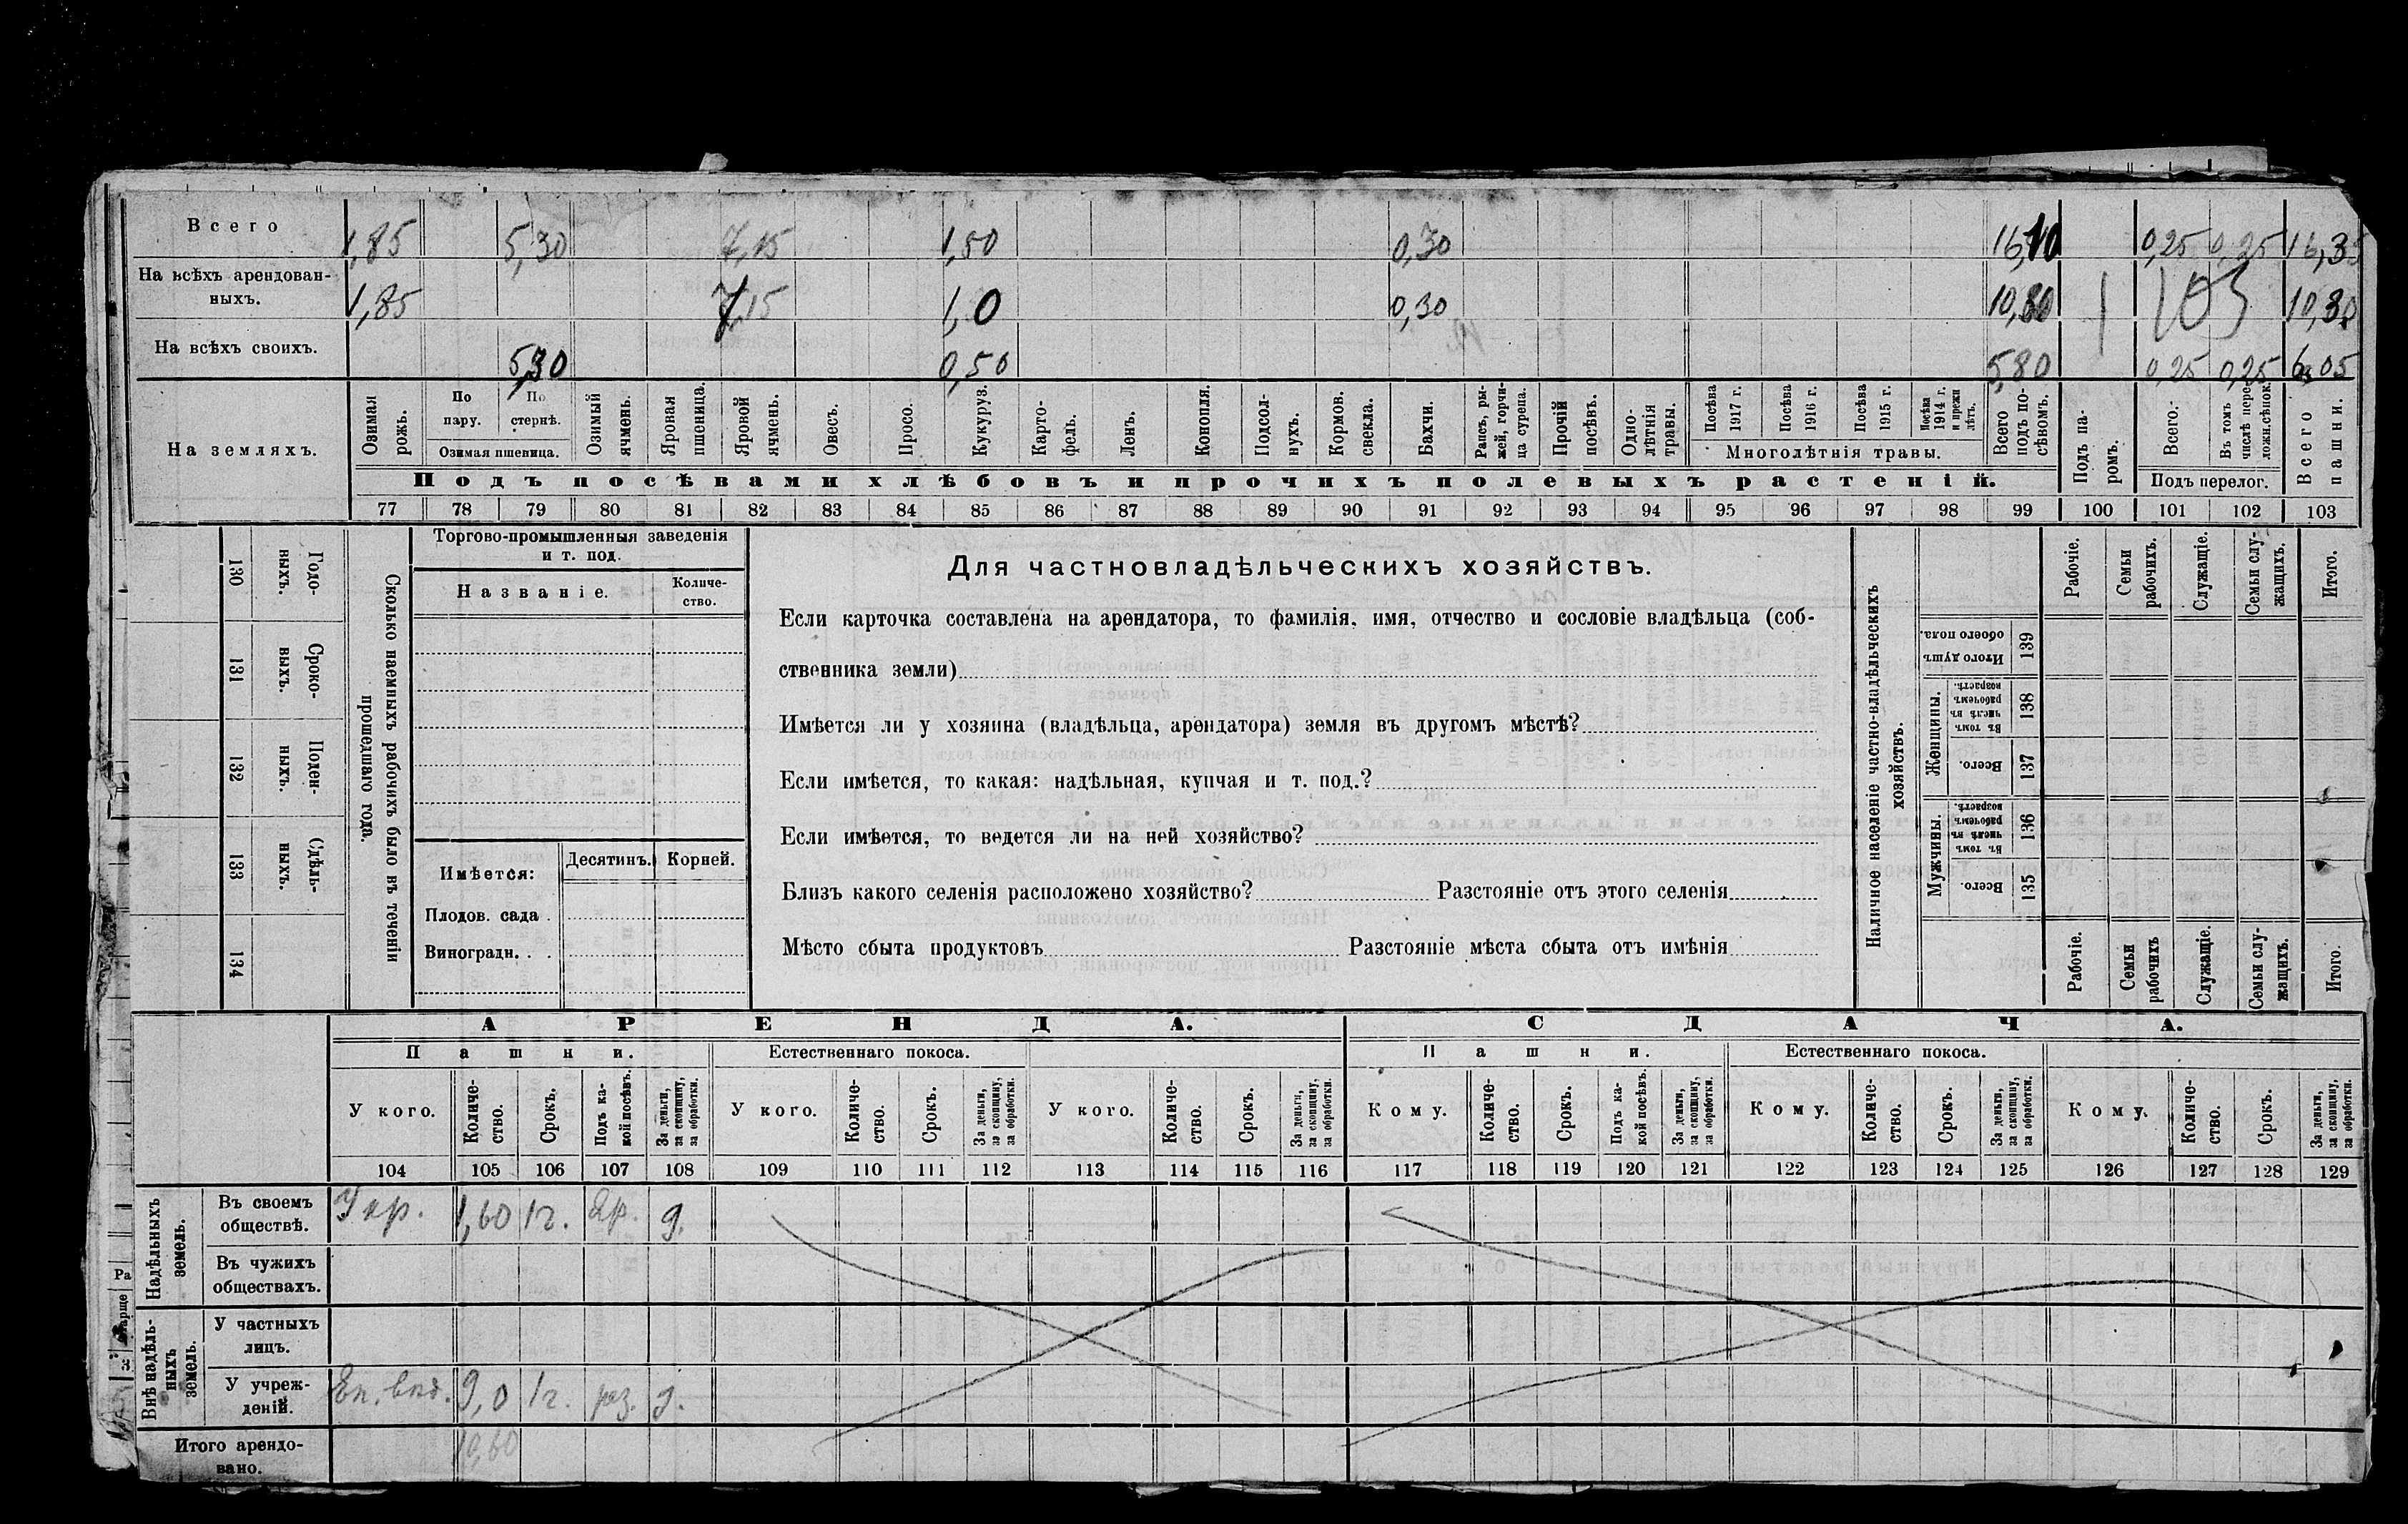 Всего 1,85 5,30 7,15 1,50 0,30 16,10 0,25 0,25 16,35
На всѣхъ арендован-
ныхъ. 1,85 7,15 1,0 0,30 10,30 103 10,30
На всѣхъ своихъ. 5,30 0,50 5,80 0,25 0,25 6,05
На земляхъ.
Озимая рожь.
По пару.
По стернѣ.
Озимая пшеница.
Озимый ячмень.
Яровая пшеница.
Яровой ячмень.
Овесъ.
Просо.
Кукуруз.
Карто-
фель.
Ленъ.
Конопля.
Подсол-
нухъ.
Кормов. свекла.
Бахчи.
Рапсъ, ры-
жей, горчи-
ца сурепа.
Прочій посѣвъ.
Одно-
лѣтнія травы.
Посѣва 1917 г.
Посѣва 1916 г.
Посѣва 1915 г.
Посѣва 1914 г. и прежн лѣтъ.
Многолѣтнія травы.
Всего подъ по-
сѣвомъ.
Подъ па-
ромъ.
Всего.
Въ томъ числѣ пере-
ложн.сѣнок.
Подъ перелог.
Всего пашни.
Подъ посѣвами хлѣбовъ и прочихъ полевыхъ растеній.
77 78 79 80 81 82 83 84 85 86 87 88 89 90 91 92 93 94 95 96 97 98 99 100 101 102 103
130 Годо-
выхъ.
131 Сроко-
выхъ.
132 Поден-
ныхъ.
133 Сдѣль-
ныхъ.
134
Сколько наемныхъ рабочихъ было въ теченіи
прошедшаго года.
Торгово-промышленныя заведенія
и т. под.
Названіе. Количе-
ство.
Имѣется: Десятинъ. Корней.
Плодов. сада .
Виноградн. . .
Для частновладѣльческихъ хозяйствъ.
Если карточка составлена на арендатора, то фамилія, имя, отчество и сословіе владѣльца (соб-
ственника земли)
Имѣется ли у хозяина (владѣльца, арендатора) земля въ другомъ мѣстѣ?
Если имѣется, то какая: надѣльная, купчая и т. под.?
Если имѣется, то ведется ли на ней хозяйство?
Близъ какого селенія расположено хозяйство? Разстояніе отъ этого селенія
Мѣсто сбыта продуктовъ Разстояніе мѣста сбыта отъ имѣнія
Наличное населеніе частно-владѣльческихъ
хозяйствъ.
Рабочіе. Семьи рабочихъ. Служащіе. Семьи слу-
жащихъ. Итого.
Итого душъ обоего пола. 139
Женщины. Въ томъ числѣ въ рабочемъ возрастѣ. 138
Всего. 137
Мужчины. Въ томъ числѣ въ рабочемъ возрастѣ. 136
Всего. 135
Рабочіе. Семьи рабочихъ Служащіе. Семьи слу-
жащихъ. Итого
АРЕНДА. СДАЧА.
Пашни. Естественнаго покоса. Пашни. Естественнаго покоса.
У кого. Количе-
ство. Срокъ. Подъ ка-
кой посѣвъ. За деньги, за скопщину, за обработки.
У кого. Количе-
ство. Срокъ. За деньги, за скопщину, за обработки.
У кого. Количе-
ство. Срокъ. За деньги, за скопщину, за обработки.
Кому. Количе-
ство. Срокъ. Подъ ка-
кой посѣвъ. За деньги, за скопщину, за обработки.
Кому. Количе-
ство. Срокъ. За деньги, за скопщину, за обработки.
Кому. Количе-
ство. Срокъ. За деньги, за скопщину, за обработки.
104 105 106 107 108 109 110 111 112 113 114 115 116 117 118 119 120 121 122 123 124 125 126 127 128 129
Надѣльныхъ земель.
Въ своемъ
обществѣ. Укр. 1,60 1г. Яр. д.
Въ чужихъ
обществахъ.
Внѣ надѣль-
ныхъ земель.
У частныхъ
лицъ.
У учреж-
деній. 9,0 1г. раз. д.
Итого арендо-
вано. 10,60
Ра